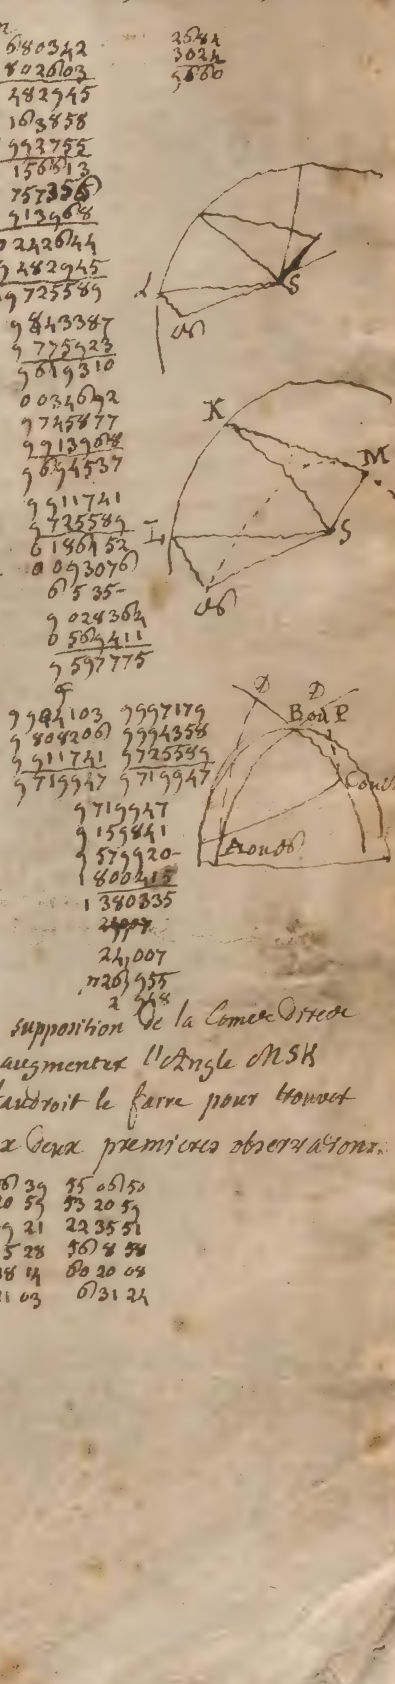 680342
802603
482945
163858
992755
156613
757356
913968
0242644
9482945
9725589
9843387
9775923
9619310
0034692
9745877
9913968
9694537
9911741
9725589
6186452
0093076
6535-
9028364
0569411
9597775
2684
3024
S
K
M
L
S
9984103 9997179
9808206 9994358
9911741 9725589
9719947 9719947
D D
B ou P
A ou
9719947
9159841
9579920-
1800415
1380335
24,007
supposition de la Comete Directe
augmenter l'Angle MSK
faudroit le faire pour trouver
x deux premieres observations.
6 39 55 06 50
20 59 53 20 59
9 21 22 35 51
5 28 56 8 58
38 14 60 20 08
1 03 6 31 24